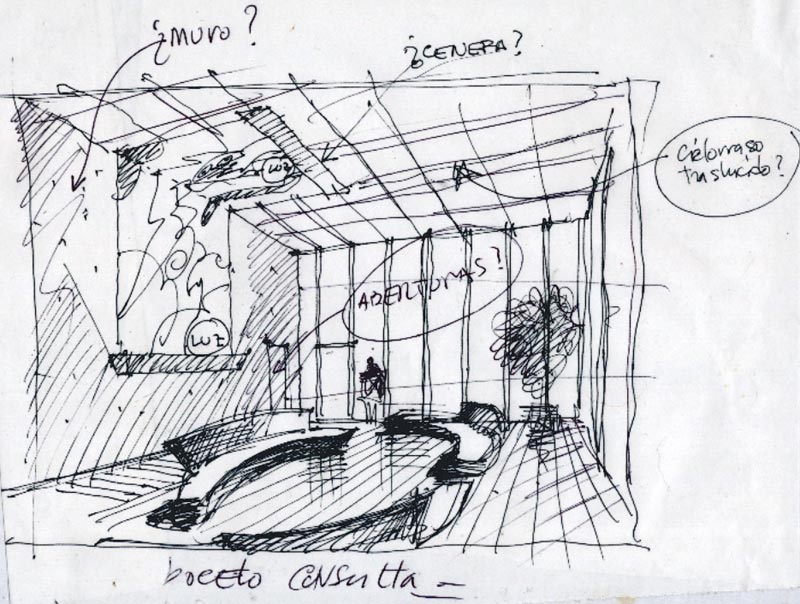 ¿MURO?
¿CENEFA?
cielorraso
traslucido?
LUZ
ABERTURAS?
LUZ
boceto consulta